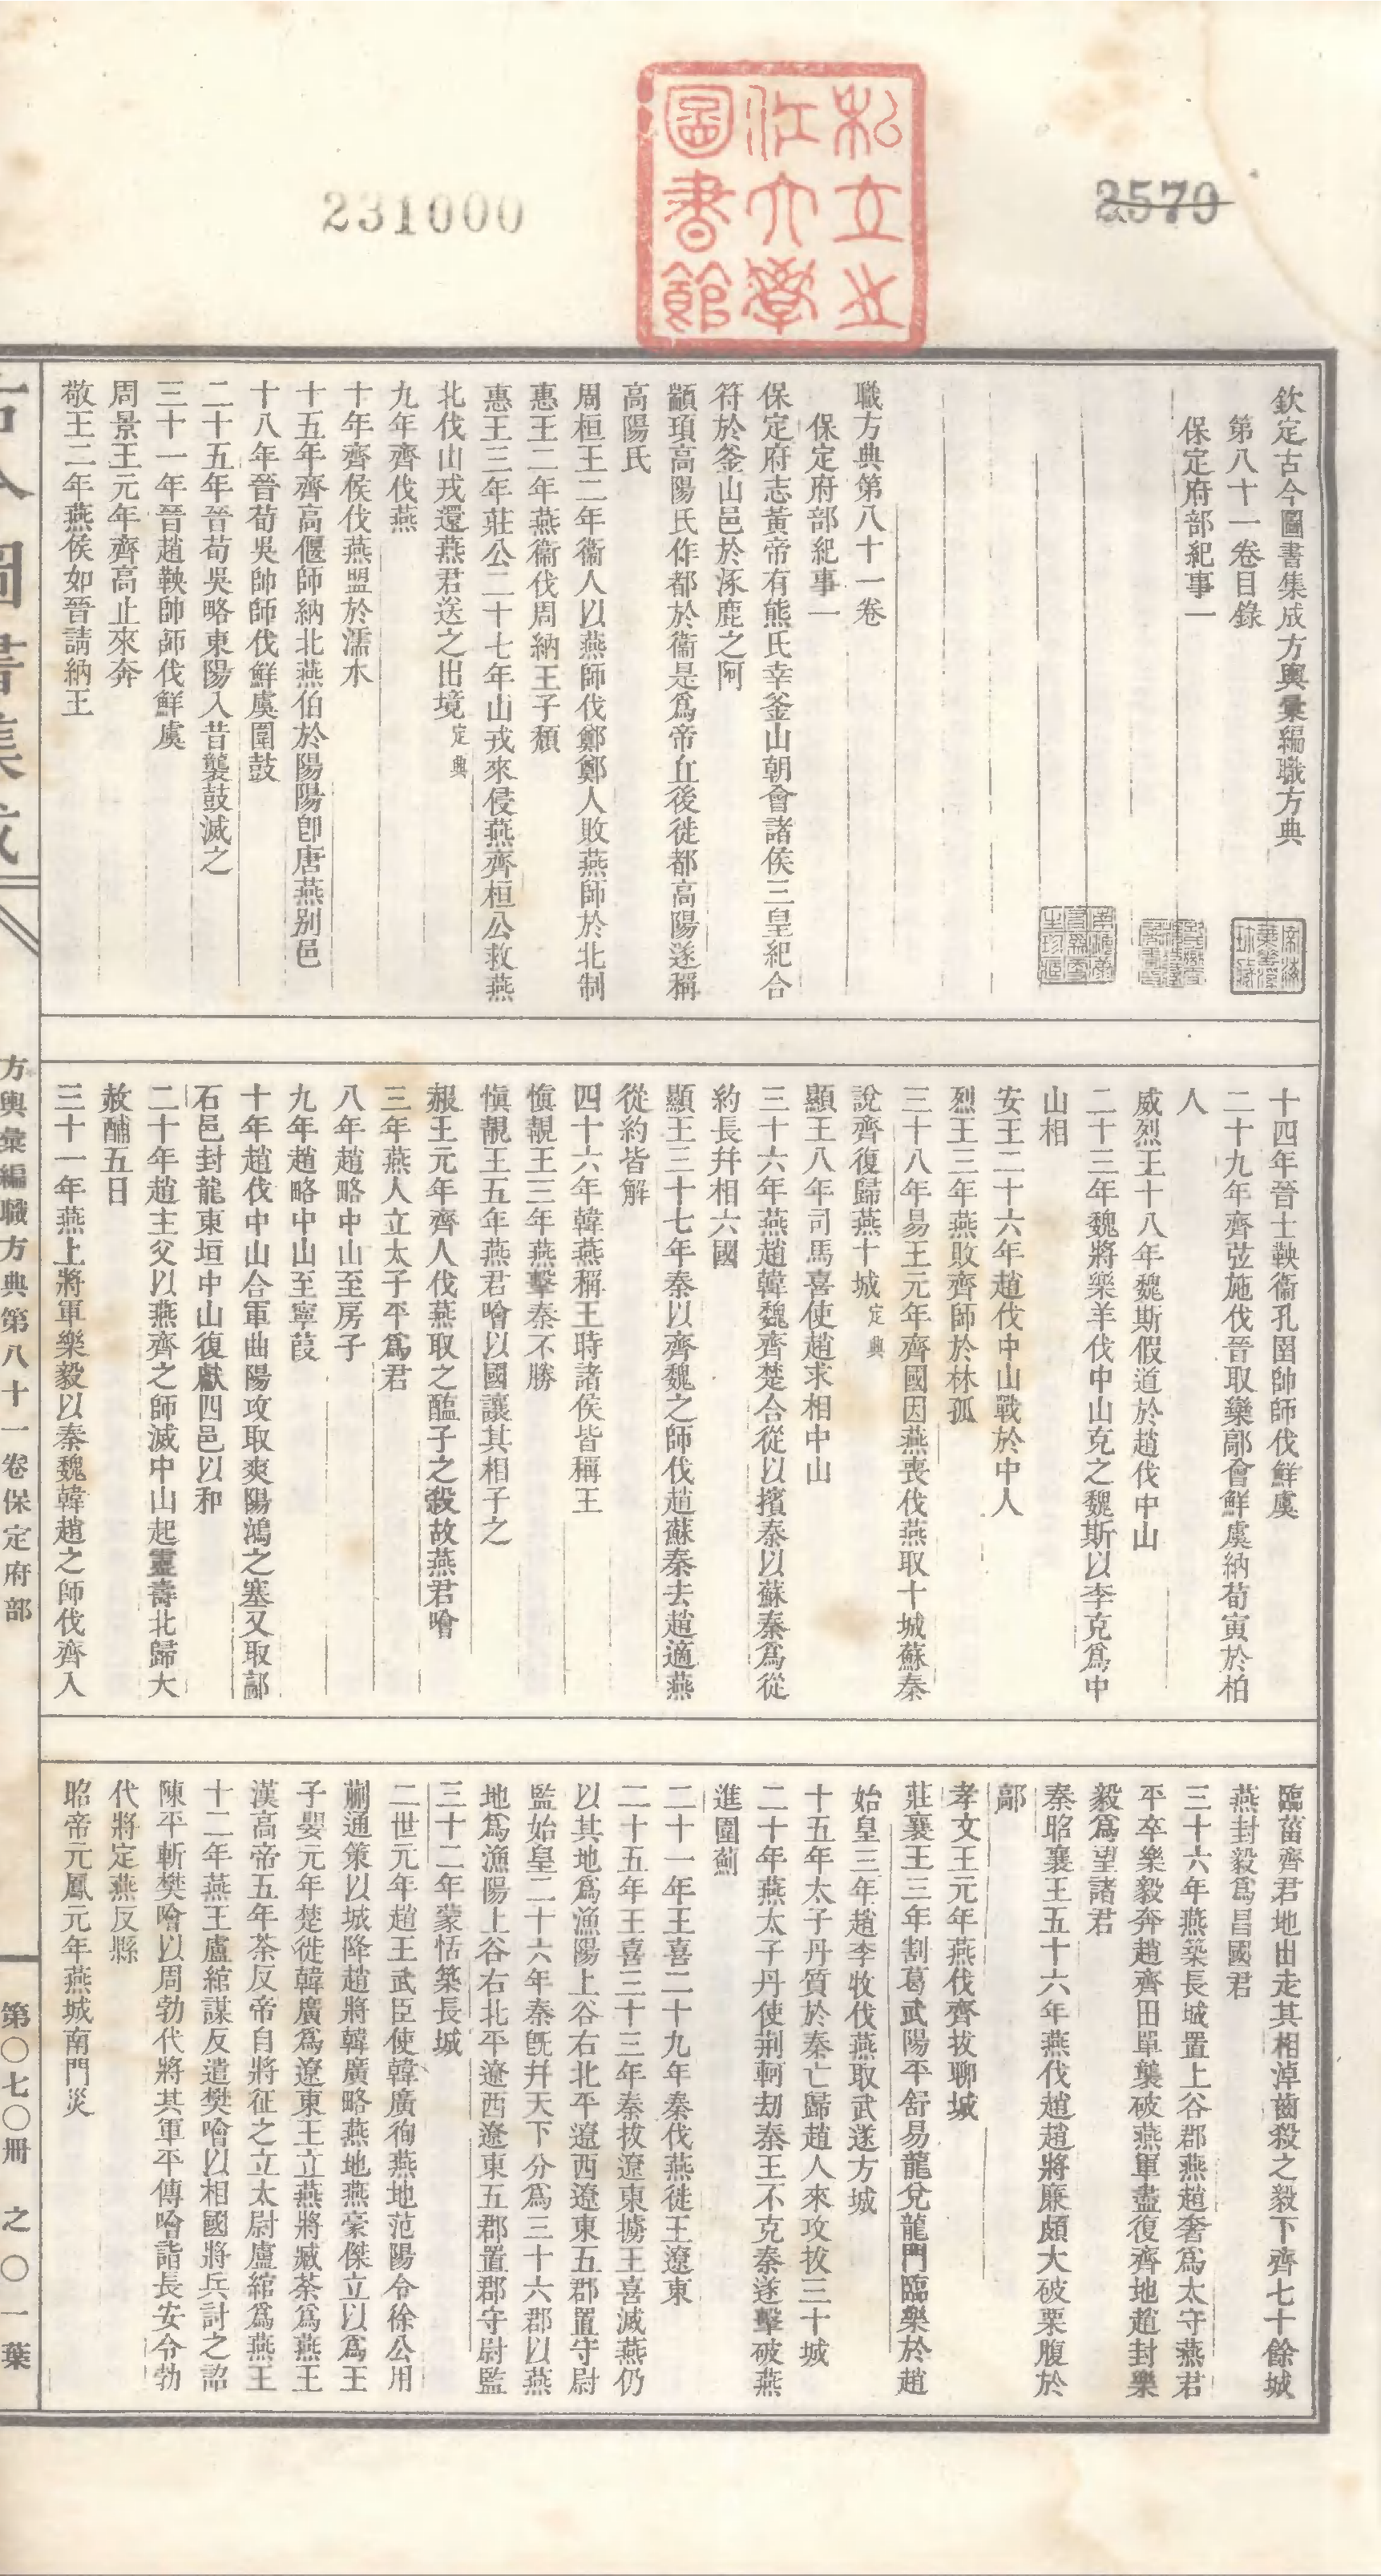 231000
2570
私立之
江大學
圖書館
欽定古今圖書集成方輿彙編職方典
第八十一卷目錄
保定府部紀事一
職方典第八十一卷
保定府部紀事一
保定府志黃帝有熊氏幸釜山朝會諸侯三皇紀合
符於釜山邑於涿鹿之阿
顓頊高陽氏作都於衞是爲帝丘後徙都高陽遂稱
高陽氏
周桓王二年衞人以燕師伐鄭鄭人敗燕師於北制
惠王二年燕衞伐周納王子頹
惠王三年莊公二十七年山戎來侵燕齊桓公救燕
北伐山戎還燕君送之出境定興
九年齊伐燕
十年齊侯伐燕盟於濡水
十五年齊高偃師納北燕伯於陽陽卽唐燕别邑
十八年晉荀吳帥師伐鮮虞圍鼓
二十五年晉荀吳略東陽入昔襲鼓滅之
三十一年晉趙鞅帥師伐鮮虞
周景王元年齊高止來奔
敬王二年燕侯如晉請納王
十四年晉士鞅衞孔圉帥師伐鮮虞
二十九年齊弦施伐晉取欒鄗會鮮虞納荀寅於柏
人
威烈王十八年魏斯假道於趙伐中山
二十三年魏將樂羊伐中山克之魏斯以李克爲中
山相
安王二十六年趙伐中山戰於中人
烈王三年燕敗齊師於林孤
三十八年易王元年齊國因燕喪伐燕取十城蘇秦
說齊復歸燕十城定興
顯王八年司馬喜使趙求相中山
三十六年燕趙韓魏齊楚合從以擯秦以蘇秦爲從
約長幷相六國
顯王三十七年秦以齊魏之師伐趙蘇秦去趙適燕
從約皆解
四十六年韓燕稱王時諸侯皆稱王
愼靚王三年燕擊秦不勝
愼靚王五年燕君噲以國讓其相子之
赧王元年齊人伐燕取之醢子之殺故燕君噲
三年燕人立太子平爲君
八年趙略中山至房子
九年趙略中山至寧葭
十年趙伐中山合軍曲陽攻取爽陽鴻之塞又取鄗
石邑封龍東垣中山復獻四邑以和
二十年趙主父以燕齊之師滅中山起靈壽北歸大
赦酺五日
三十一年燕上將軍樂毅以秦魏韓趙之師伐齊入
臨菑齊君地出走其相淖齒殺之毅下齊七十餘城
燕封毅爲昌國君
三十六年燕築長城置上谷郡燕趙奢爲太守燕君
平卒樂毅奔趙齊田單襲破燕軍盡復齊地趙封樂
毅爲望諸君
秦昭襄王五十六年燕伐趙趙將廉頗大破栗腹於
鄗
孝文王元年燕伐齊拔聊城
莊襄王三年割葛武陽平舒易龍兌龍門臨樂於趙
始皇三年趙李牧伐燕取武遂方城
十五年太子丹質於秦亡歸趙人來攻拔三十城
二十年燕太子丹使荆軻劫秦王不克秦遂擊破燕
進圍薊
二十一年王喜二十九年秦伐燕徙王遼東
二十五年王喜三十三年秦拔遼東擄王喜滅燕仍
以其地爲漁陽上谷右北平遼西遼東五郡置守尉
監始皇二十六年秦旣幷天下分爲三十六郡以燕
地爲漁陽上谷右北平遼西遼東五郡置郡守尉監
三十二年蒙恬築長城
二世元年趙王武臣使韓廣徇燕地范陽令徐公用
蒯通策以城降趙將韓廣略燕地燕豪傑立以爲王
子嬰元年楚徙韓廣爲遼東王立燕將臧荼爲燕王
漢高帝五年荼反帝自將征之立太尉盧綰爲燕王
十二年燕王盧綰謀反遣樊噲以相國將兵討之詔
陳平斬樊噲以周勃代將其軍平傳噲詣長安令勃
代將定燕反縣
昭帝元鳳元年燕城南門災
古今圖書集成
方輿彙編職方典第八十一卷保定府部
第〇七〇冊之〇一葉